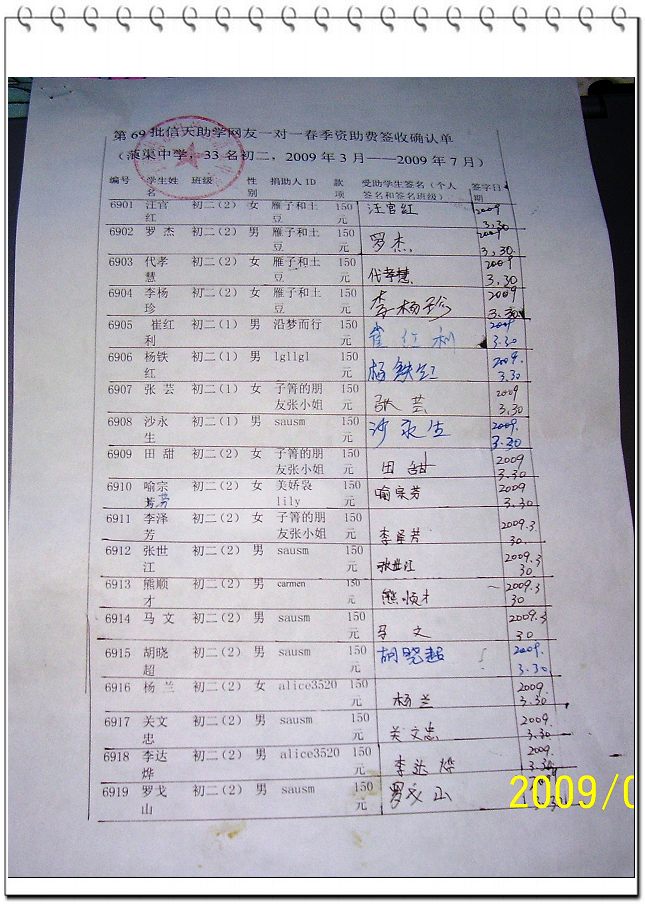 第69批信天助学网友一对一春季资助费签收确认单
(蒗渠中学，33名初二，2009年3月——2009年7月)
编号 学生姓名 班级 性别 捐助人ID 款项 受助学生签名(个人签名和签名班级) 签字日期
6901 汪官红 初二(2) 女 雁子和土豆 150元 汪官红 2009 3.30
6902 罗杰 初二(2) 男 雁子和土豆 150元 罗杰 2009 3.30
6903 代孝慧 初二(2) 女 雁子和土豆 150元 代孝慧 2009 3.30
6904 李杨珍 初二(2) 女 雁子和土豆 150元 李杨珍 2009 3.30
6905 崔红利 初二(1) 男 沿梦而行 150元 崔红利 2009 3.30
6906 杨铁红 初二(1) 男 lgllgl 150元 杨铁红 2009. 3.30
6907 张芸 初二(1) 女 子箐的朋友张小姐 150元 张芸 2009 3.30
6908 沙永生 初二(1) 男 sausm 150元 沙永生 2009. 3.30
6909 田甜 初二(2) 女 子箐的朋友张小姐 150元 田甜 2009 3.30
6910 喻宗芳 初二(2) 女 美娇袅lily 150元 喻宗芳 2009 3.30
6911 李泽芳 初二(2) 女 子箐的朋友张小姐 150元 李泽芳 2009.3 30.
6912 张世江 初二(2) 男 sausm 150元 张世江 2009.3 30
6913 熊顺才 初二(2) 男 carmen 150元 熊顺才 2009.3 30
6914 马文 初二(2) 男 sausm 150元 马文 2009.3 30
6915 胡晓超 初二(2) 男 sausm 150元 胡晓超 2009. 3.30
6916 杨兰 初二(2) 女 alice3520 150元 杨兰 2009. 3.30
6917 关文忠 初二(2) 男 sausm 150元 关文忠 2009. 3.30
6918 李达烨 初二(2) 男 alice3520 150元 李达烨 2009. 3.30
6919 罗戈山 初二(2) 男 sausm 150元 罗戈山
2009/0